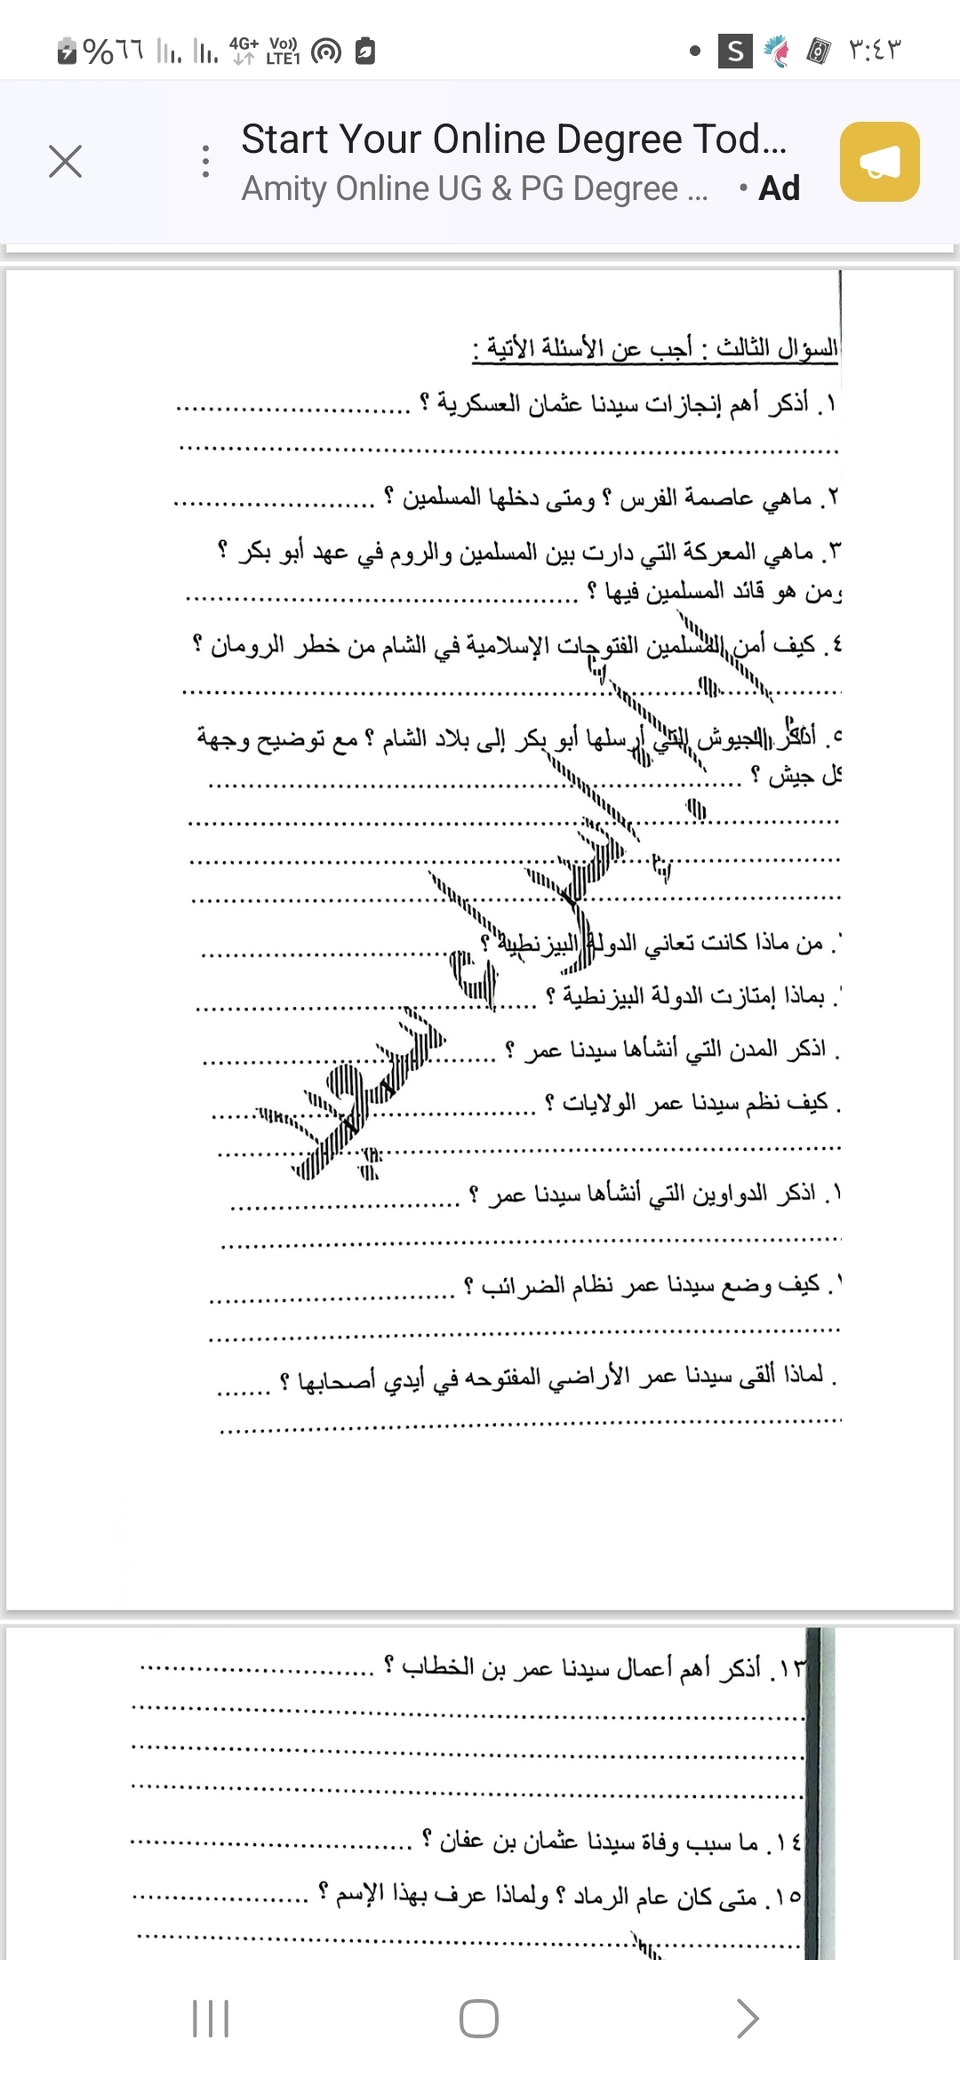 %٦٦ 4G+ Vo)) LTE1 S ٣:٤٣
Start Your Online Degree Tod...
Amity Online UG & PG Degree ... • Ad
السؤال الثالث : أجب عن الأسئلة الأتية :
١. أذكر أهم إنجازات سيدنا عثمان العسكرية ؟ ............................
................................................................................
٢. ماهي عاصمة الفرس ؟ ومتى دخلها المسلمين ؟ ........................
٣. ماهي المعركة التي دارت بين المسلمين والروم في عهد أبو بكر ؟
ومن هو قائد المسلمين فيها ؟ ................................................
٤. كيف أمن المسلمين الفتوحات الإسلامية في الشام من خطر الرومان ؟
................................................................................
٥. أذكر الجيوش التي أرسلها أبو بكر إلى بلاد الشام ؟ مع توضيح وجهة
كل جيش ؟ ................................................................
................................................................................
................................................................................
................................................................................
. من ماذا كانت تعاني الدولة البيزنطية ؟ ................................
. بماذا إمتازت الدولة البيزنطية ؟ ........................................
. اذكر المدن التي أنشأها سيدنا عمر ؟ ....................................
. كيف نظم سيدنا عمر الولايات ؟ ........................................
................................................................................
١. اذكر الدواوين التي أنشأها سيدنا عمر ؟ ............................
................................................................................
. كيف وضع سيدنا عمر نظام الضرائب ؟ ..............................
................................................................................
. لماذا ألقى سيدنا عمر الأراضي المفتوحه في أيدي أصحابها ؟ .......
................................................................................
١٣. أذكر أهم أعمال سيدنا عمر بن الخطاب ؟ ............................
................................................................................
................................................................................
................................................................................
١٤. ما سبب وفاة سيدنا عثمان بن عفان ؟ ..................................
١٥. متى كان عام الرماد ؟ ولماذا عرف بهذا الإسم ؟ .....................
................................................................................